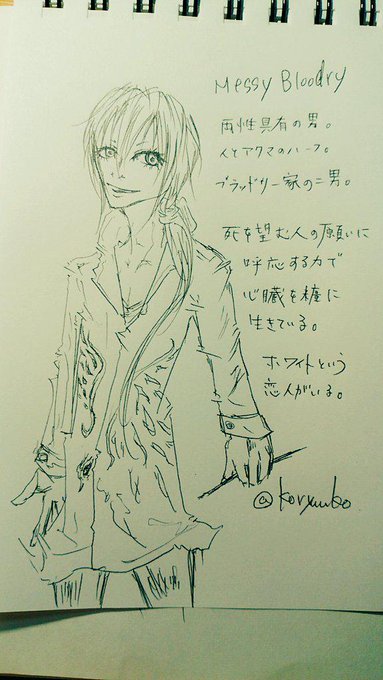 Messy Bloodry
両性具有の男。
人とアクマのハーフ。
ブラッドリー家の二男。
死を望む人の願いに
呼応する力で
心臓を糧に
生きている。
ホワイトという
恋人がいる。